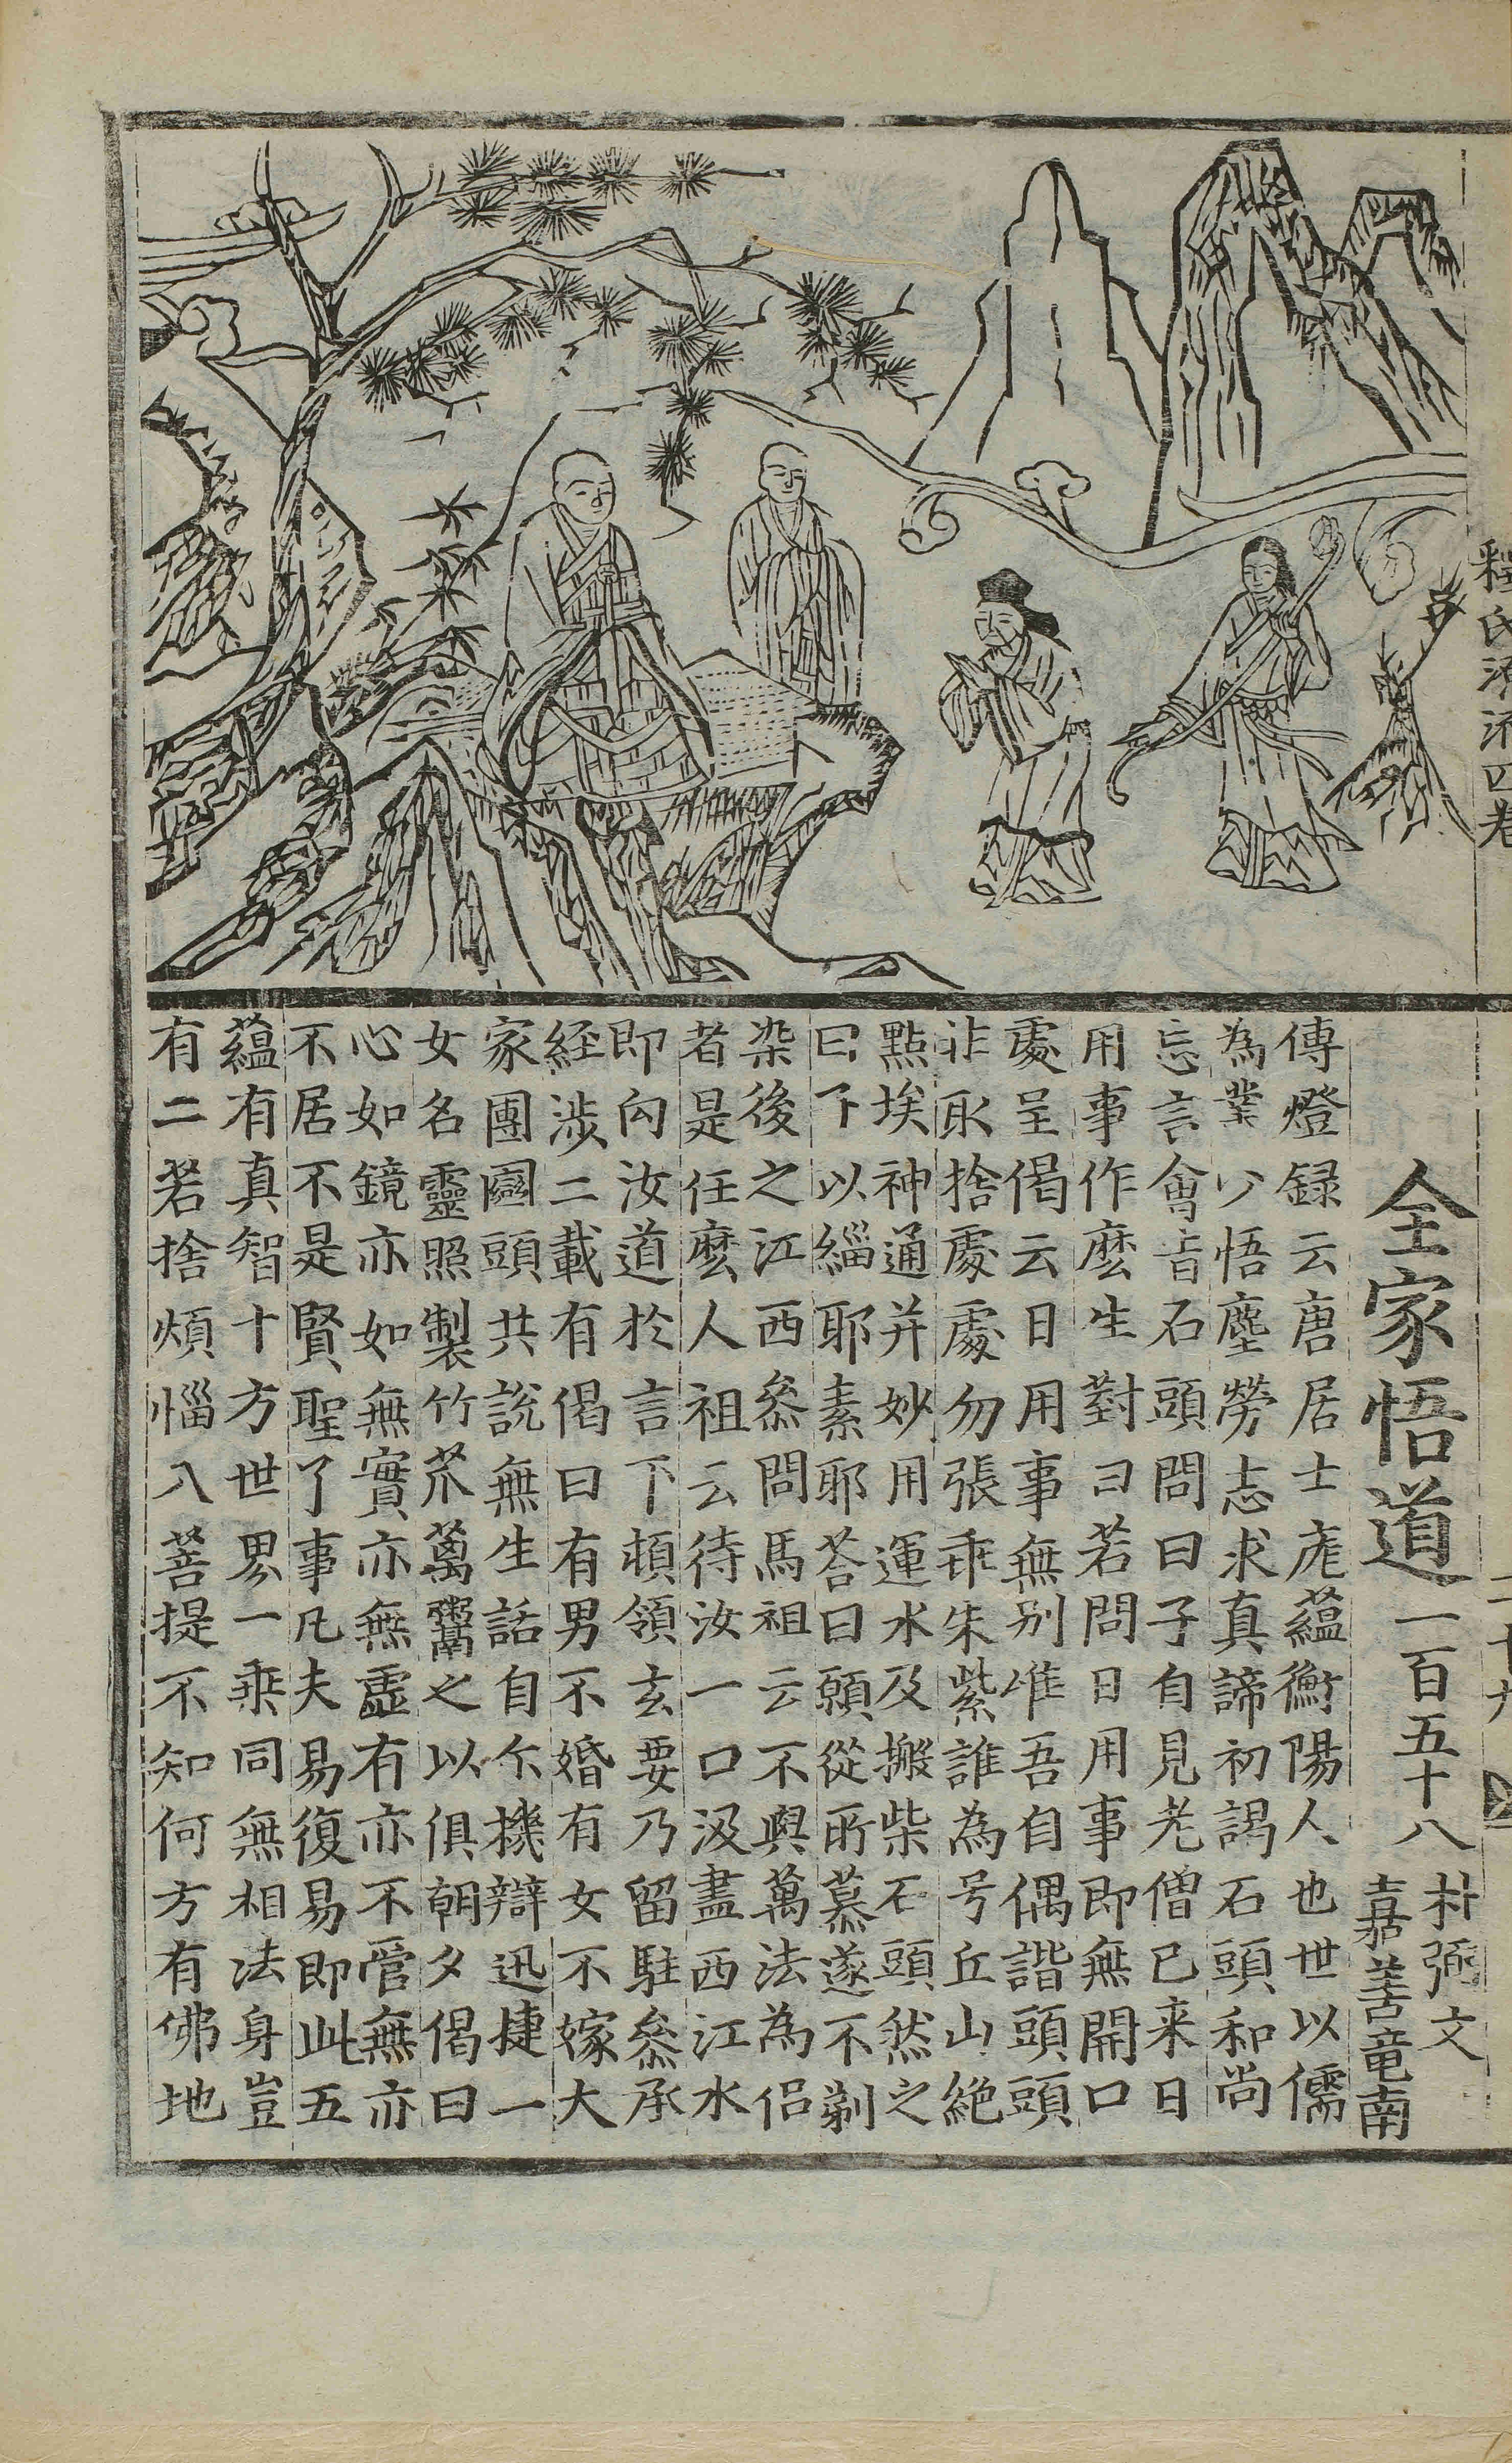 釋氏源流四卷
二十九
全家悟道一百五十八
朴弼文
嘉善竜南
傳燈録云唐居士龐蘊衡陽人也世以儒
為業少悟塵勞志求真諦初謁石頭和尚
忘言會旨石頭問曰子自見老僧已来日
用事作麽生對曰若問日用事即無開口
處呈偈云日用事無别唯吾自偶諧頭頭
非取捨處處勿張乖朱紫誰為号丘山絶
點埃神通并妙用運水及搬柴石頭然之
曰下以緇耶素耶荅曰願從所慕遂不剃
染後之江西叅問馬祖云不與萬法為侣
者是任麽人祖云待汝一口汲盡西江水
即向汝道於言下頓領玄要乃留駐叅承
経涉二載有偈曰有男不婚有女不嫁大
家團圝頭共說無生話自尓機辯迅捷一
女名靈照製竹笊籬鬻之以俱朝夕偈曰
心如鏡亦如無實亦無虛有亦不管無亦
不居不是賢聖了事凡夫易復易即此五
蘊有真智十方世界一乘同無相法身豈
有二若捨煩惱入菩提不知何方有佛地